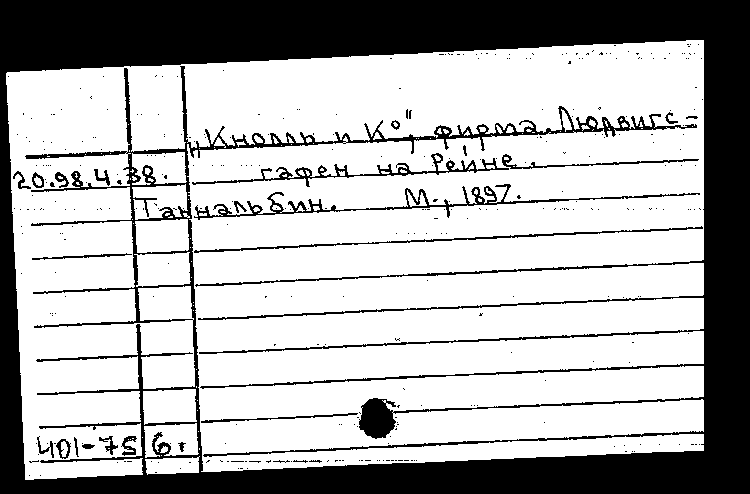 „Кнолль и К°", фирма. Людвигс-
20.98.4.38. гафен на Рейне.
Таннальбин. М., 1897.
401-75 6.